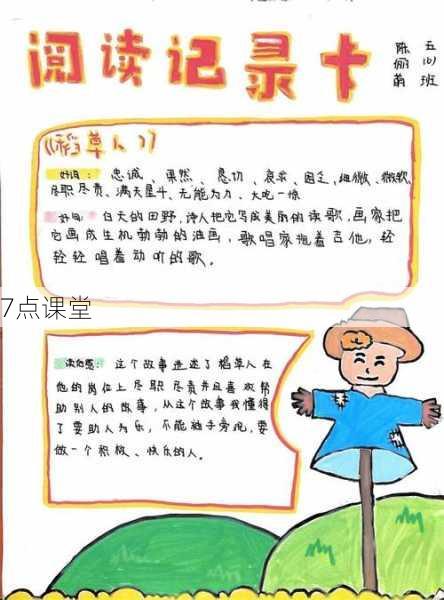 阅读记录卡
五(1)班
陈俪萌
《稻草人》
好词：忠诚、果然、急切、哀求、困乏、细微、微软、
尽职尽责、满天星斗、无能为力、大吃一惊
好句：白天的田野,诗人把它写成美丽的诗歌,画家把
它画成生机勃勃的油画,歌唱家抱着吉他,轻
轻轻唱着动听的歌。
7点课堂
读后感：这个故事讲述了稻草人在
他的岗位上尽职尽责并且喜欢帮
助别人的故事,从这个故事我懂得
了要助人为乐,不能袖手旁观,要
做一个积极、快乐的人。